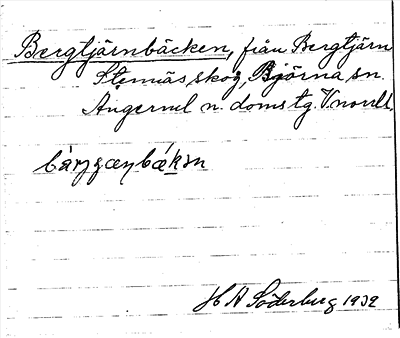 Bergtjärnbäcken, från Bergtjärn
Stennäs skog, Björna sn.
Ångerml n. doms tg. V norrl.
H A Söderberg 1932